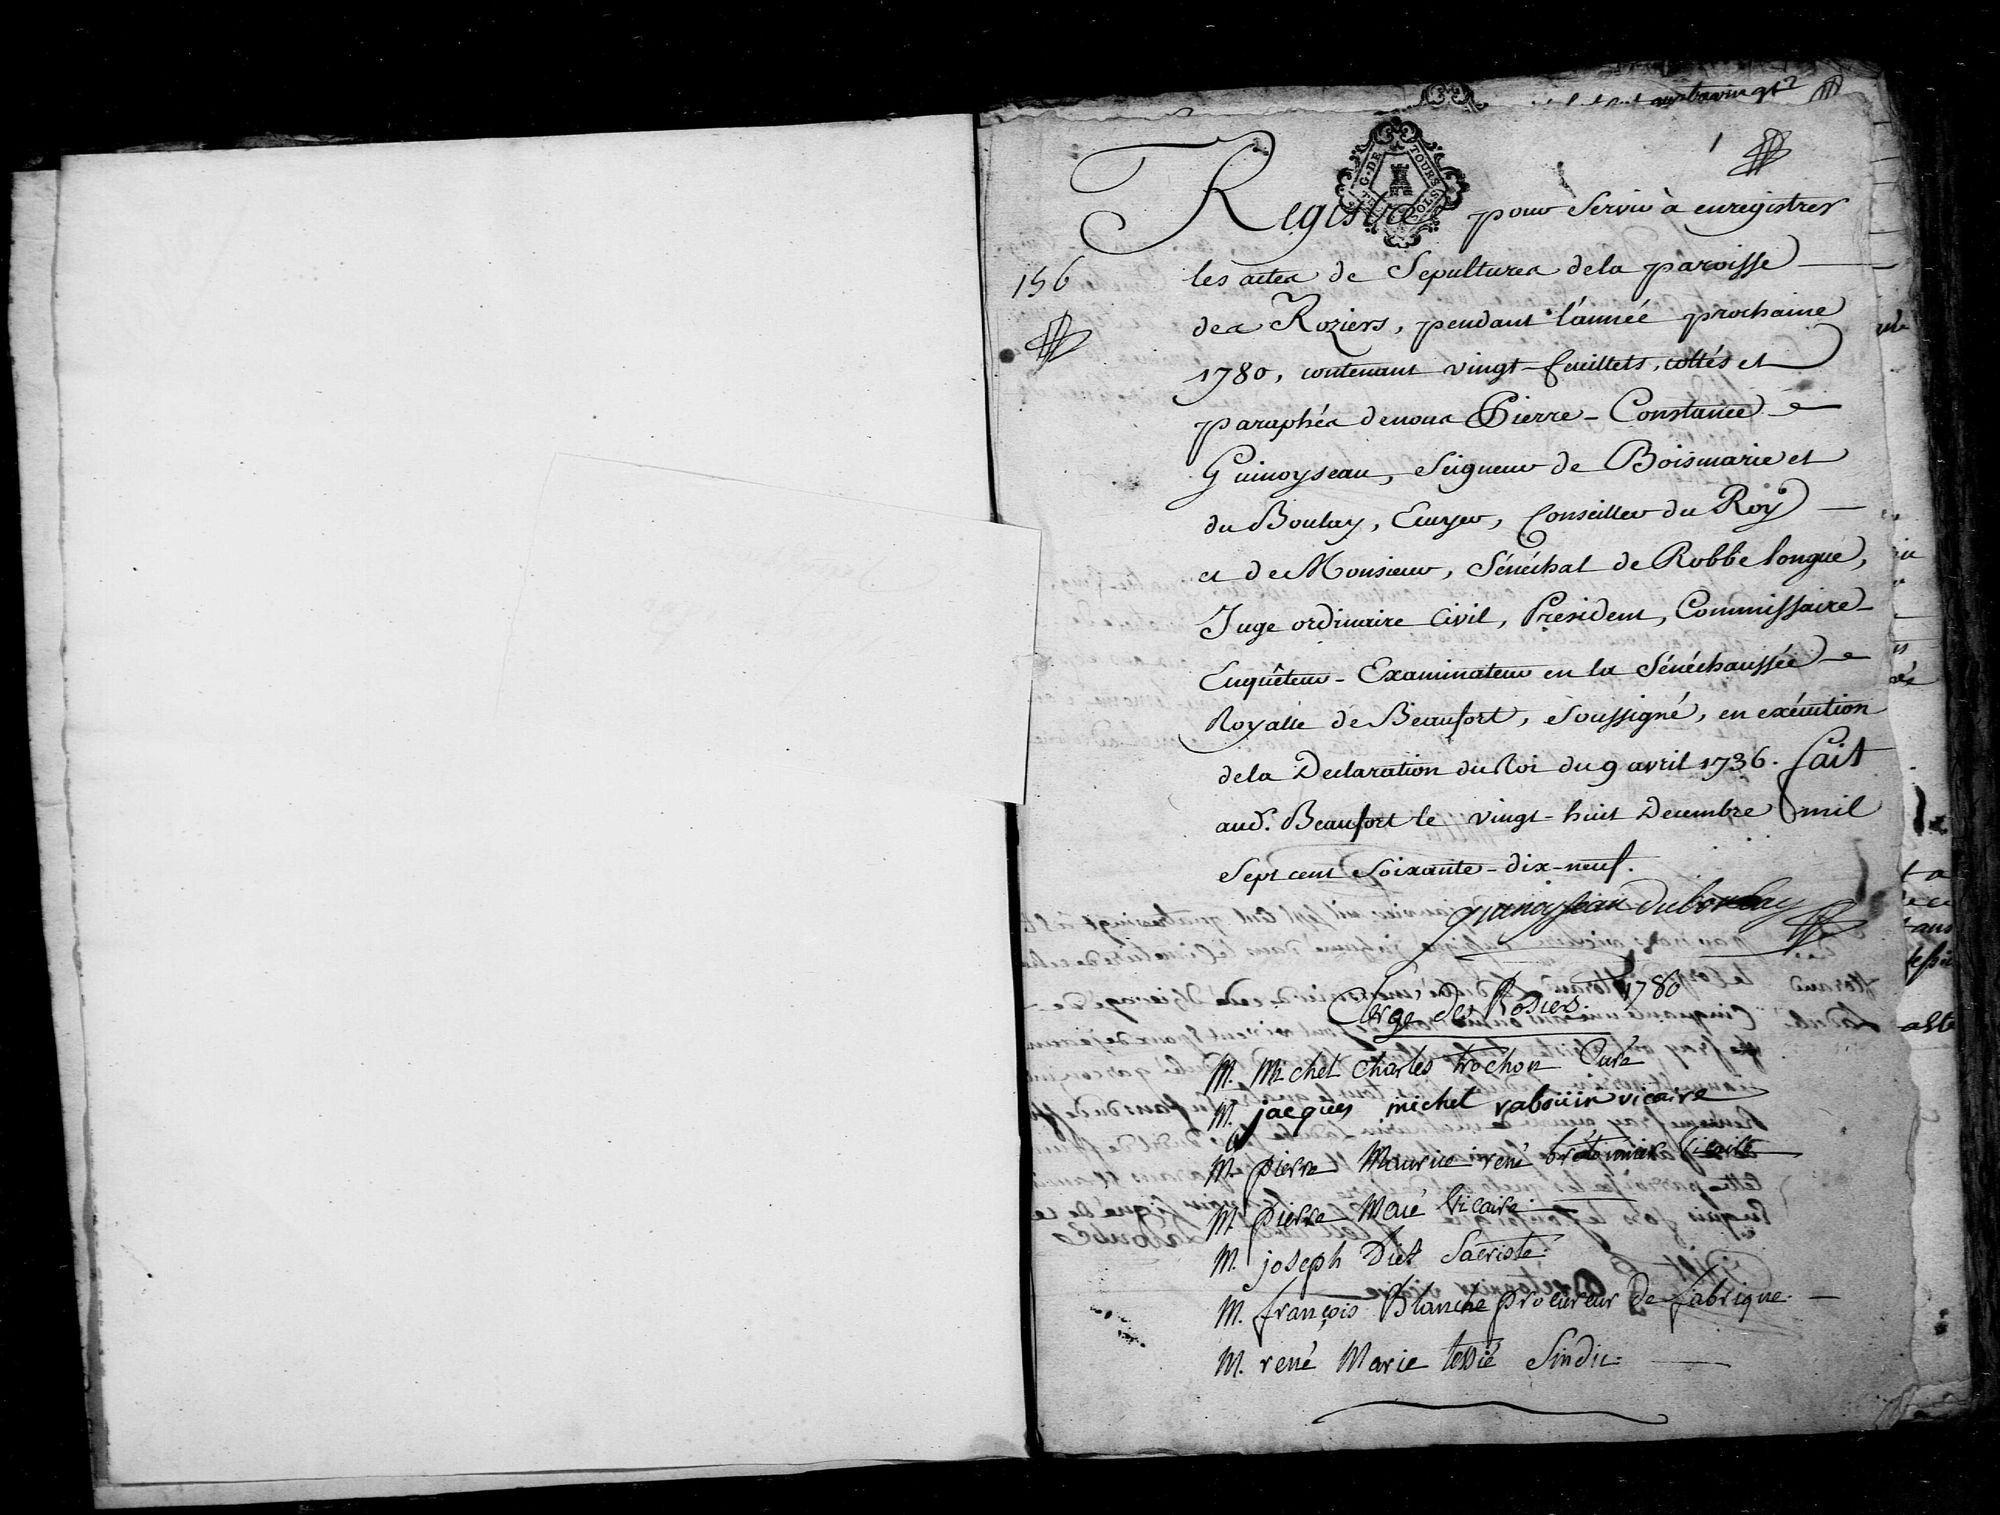 1
Registre pour Servir à enregistrer
156
les actes de Sepultures de la paroisse
des Roziers, pendant l'année prochaine
1780, contenant vingt-feuillets, cottés et
paraphés de nous Pierre-Constance
Guinoyseau, Seigneur de Boismarie et
du Boulay, Ecuyer, Conseiller du Roy
et de Monsieur, Sénéchal de Robbe longue,
Juge ordinaire Civil, Président, Commissaire
Enquêteur-Examinateur en la Sénéchaussée
Royalle de Beaufort, soussigné, en exécution
de la Declaration du Roi du 9 avril 1736. fait
aud. Beaufort le vingt-huit Decembre mil
Sept cent Soixante-dix-neuf.
Guinoyseau Duboulay
Clergé des Rosiers. 1780
M. Michel Charles trochon Curé
M. jacques michel rabouin vicaire
M. pierre Maurice rené bretonnier Vicaire
M. pierre Maié Vicaire
M. joseph Diet Sacriste.
M. françois Blanche procureur de fabrique.
M. rené Marie tessié Sindic.